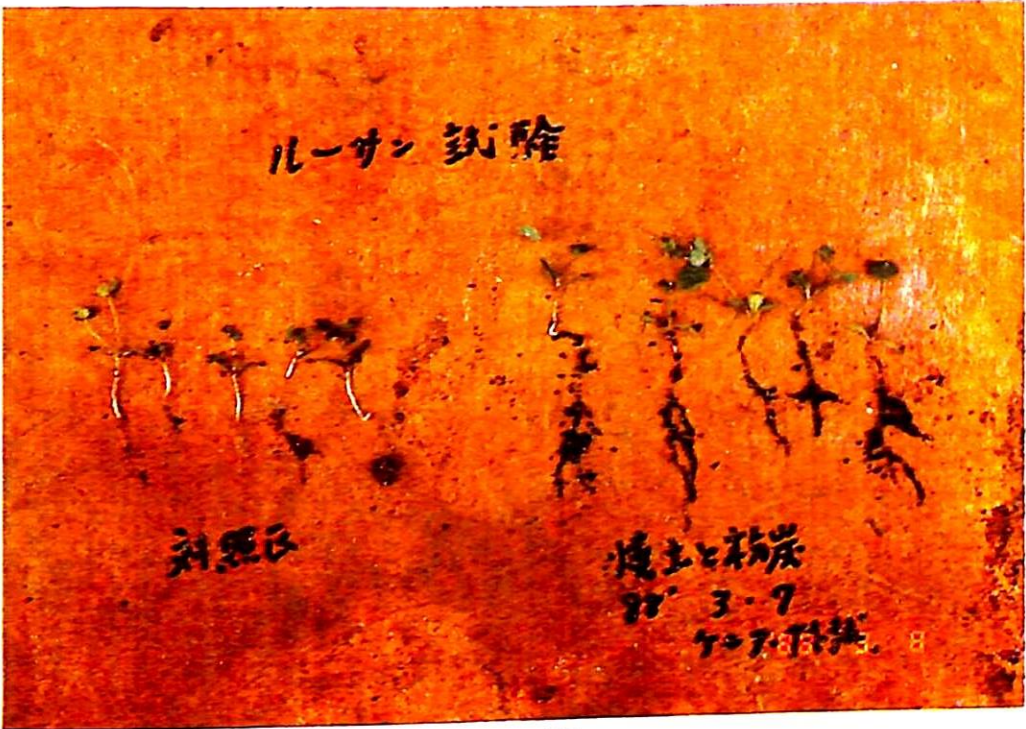 ルーサン 試験
対照区
焼土と粉炭
88' 3・7
ケニア
8